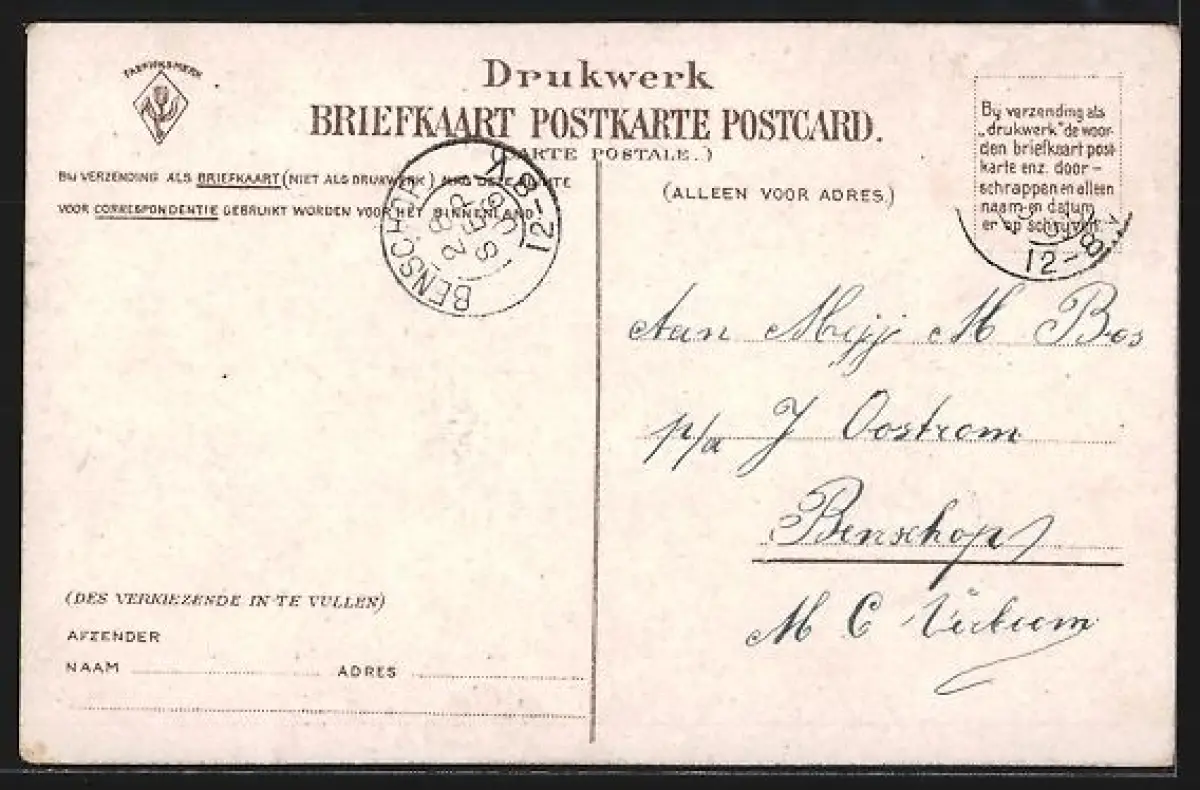 FABRIEKSMERK
Drukwerk
BRIEFKAART POSTKARTE POSTCARD.
(CARTE POSTALE.)
BIJ VERZENDING ALS BRIEFKAART (NIET ALS DRUKWERK) MAG DEZE RUIMTE
VOOR CORRESPONDENTIE GEBRUIKT WORDEN VOOR HET BINNENLAND
(ALLEEN VOOR ADRES.)
By verzending als
„drukwerk" de woor-
den briefkaart post
karte enz. door-
schrappen en alleen
naam en datum
er op schryven.
BENSCHOP
28 SEP
12-8 V
12-8 V
Aan Mejj M Bos
p/a J Oostrom
Benschop
M C
(DES VERKIEZENDE IN TE VULLEN)
AFZENDER
NAAM ADRES